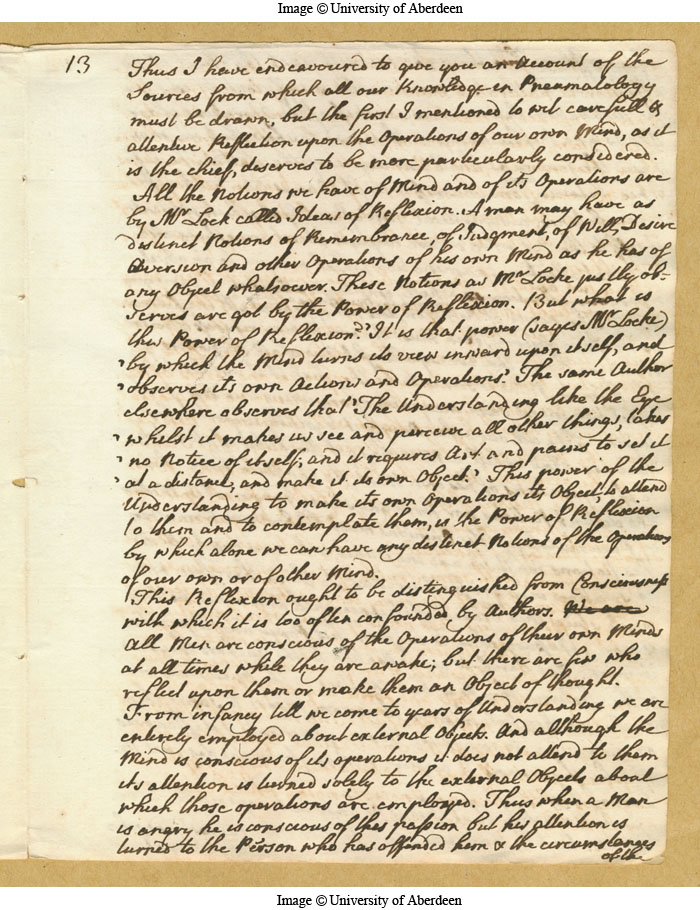 Image © University of Aberdeen
13
Thus I have endeavoured to give you an Account of the
Sources from which all our Knowledge in Pneumatology
must be drawn, but the first I mentioned to wit carefull &
attentive Reflection upon the Operations of our own Mind, as it
is the chief, deserves to be more particularly considered.
All the Notions we have of Mind and of its Operations are
by Mr Lock called Ideas of Reflexion. A man may have as
distinct Notions of Remembrance, of Judgment, of Will, Desire
Aversion and other Operations of his own Mind as he has of
any Object whatsoever. These Notions as Mr Locke justly ob-
serves are got by the Power of Reflexion. But what is
this Power of Reflexion? 'It is that power (says Mr Locke)
' by which the Mind turns its view inward upon itself, and
' observes its own Actions and Operations.' The same Author
elsewhere observes that 'The Understanding like the Eye
' whilst it makes us see and perceive all other things, takes
' no Notice of itself; and it requires Art and pains to set it
' at a distance, and make it its own Object.' This power of the
Understanding to make its own Operations its Object, to attend
to them and to contemplate them, is the Power of Reflexion
by which alone we can have any distinct Notions of the Operations
of our own or of other Mind.
This Reflexion ought to be distinguished from Consciousness
with which it is too often confounded by Authors. We are
All Men are conscious of the Operations of their own Minds
at all times while they are awake; but there are few who
reflect upon them or make them an Object of thought.
From infancy till we come to years of Understanding we are
entirely employed about external Objects. And although the
Mind is conscious of its operations it does not attend to them
its attention is turned solely to the external Objects about
which those operations are employed. Thus when a Man
is angry he is conscious of this passion but his attention is
turned to the Person who has offended him & the circumstances
of the
Image © University of Aberdeen